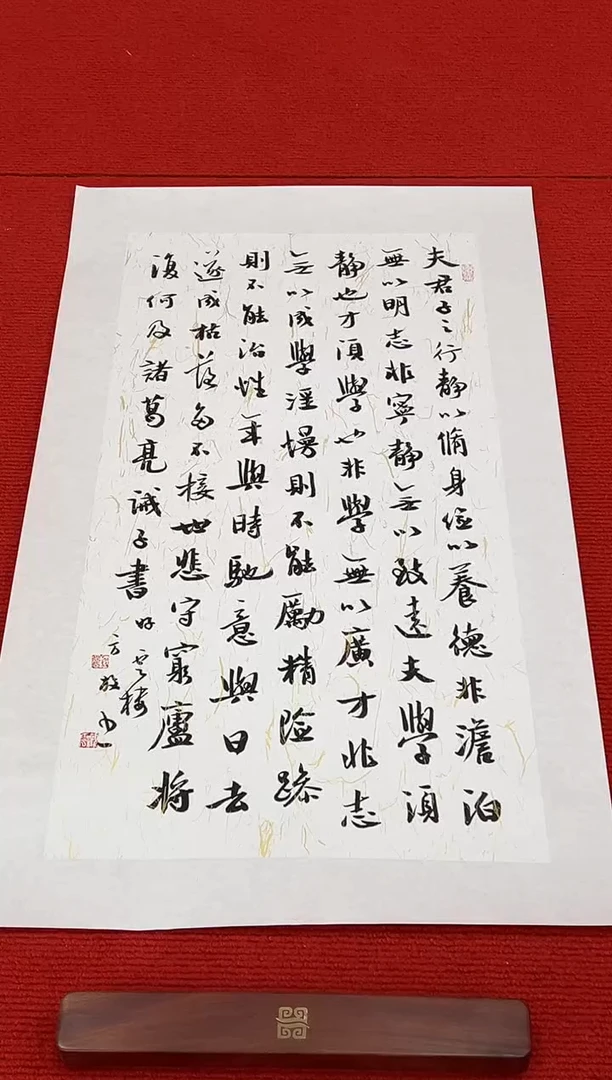 夫君子之行静以脩身俭以養德非澹泊
無以明志非寧静无以致遠夫學须
静也才须學也非學無以廣才非志
无以成學淫慢則不能勵精险躁
則不能治性年與時馳意與日去
遂成枯落多不接世悲守窮廬将
復何及諸葛亮诫子書